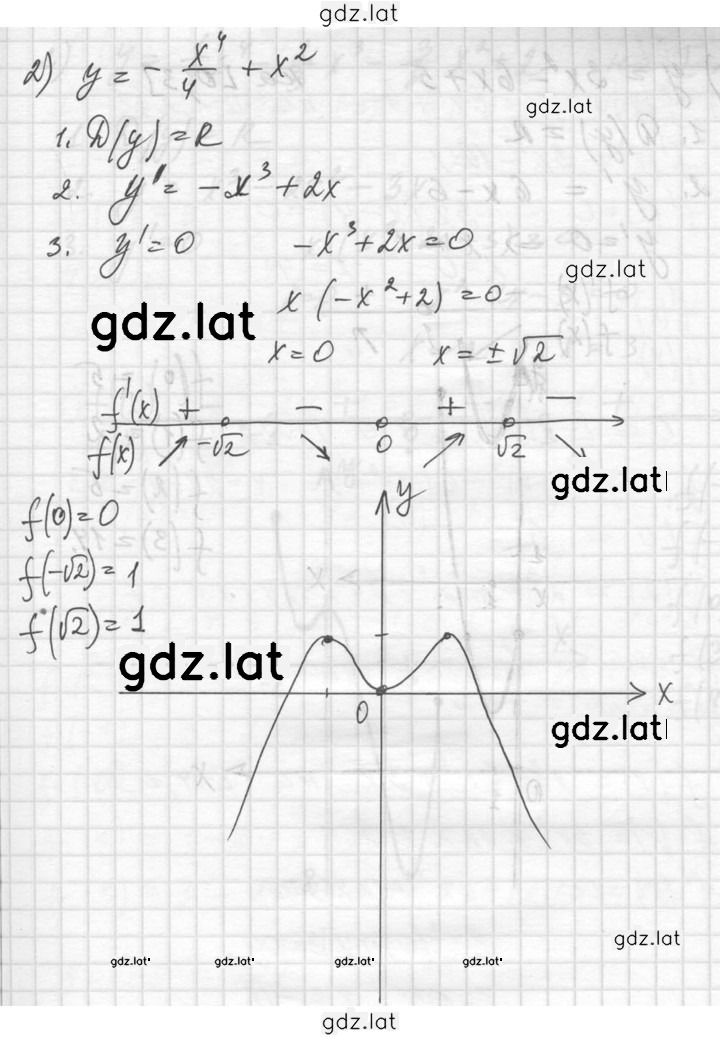 gdz.lat
2) y = - x⁴/4 + x²
gdz.lat
1. D(y) = R
2. y' = -x³ + 2x
3. y' = 0 -x³ + 2x = 0
gdz.lat
x(-x² + 2) = 0
gdz.lat
x = 0 x = ±√2
f'(x) + − + −
f(x) ↗ -√2 ↘ 0 ↗ √2 ↘
gdz.lat
y
f(0) = 0
f(-√2) = 1
f(√2) = 1
gdz.lat
x
0
gdz.lat
gdz.lat
gdz.lat gdz.lat gdz.lat gdz.lat
gdz.lat